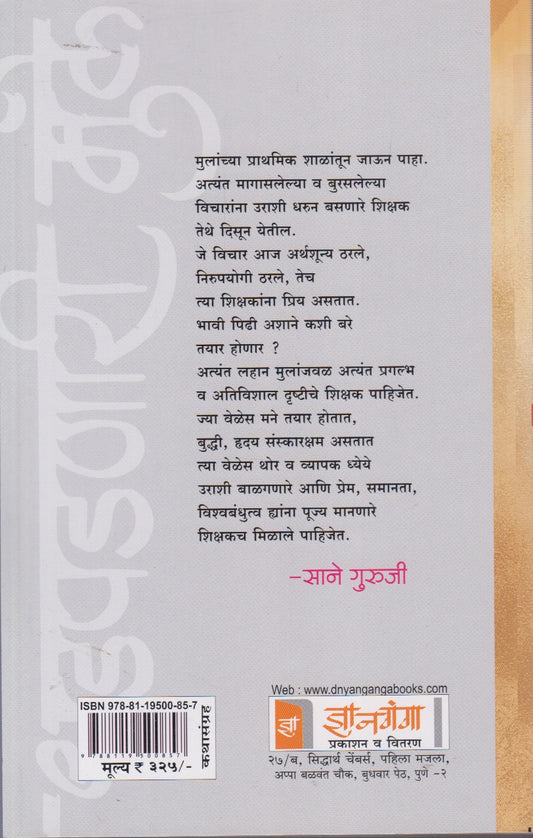 धडपडणारी मुले
मुलांच्या प्राथमिक शाळांतून जाऊन पाहा.
अत्यंत मागासलेल्या व बुरसलेल्या
विचारांना उराशी धरुन बसणारे शिक्षक
तेथे दिसून येतील.
जे विचार आज अर्थशून्य ठरले,
निरुपयोगी ठरले, तेच
त्या शिक्षकांना प्रिय असतात.
भावी पिढी अशाने कशी बरे
तयार होणार ?
अत्यंत लहान मुलांजवळ अत्यंत प्रगल्भ
व अतिविशाल दृष्टीचे शिक्षक पाहिजेत.
ज्या वेळेस मने तयार होतात,
बुद्धी, हृदय संस्कारक्षम असतात
त्या वेळेस थोर व व्यापक ध्येये
उराशी बाळगणारे आणि प्रेम, समानता,
विश्वबंधुत्व ह्यांना पूज्य मानणारे
शिक्षकच मिळाले पाहिजेत.
-साने गुरुजी
ISBN 978-81-19500-85-7
9 788119 500857
मूल्य ₹ ३२५/-
कथासंग्रह
Web : www.dnyangangabooks.com
ज्ञा
ज्ञानगंगा
प्रकाशन व वितरण
२७/ब, सिद्धार्थ चेंबर्स, पहिला मजला,
अप्पा बळवंत चौक, बुधवार पेठ, पुणे -२